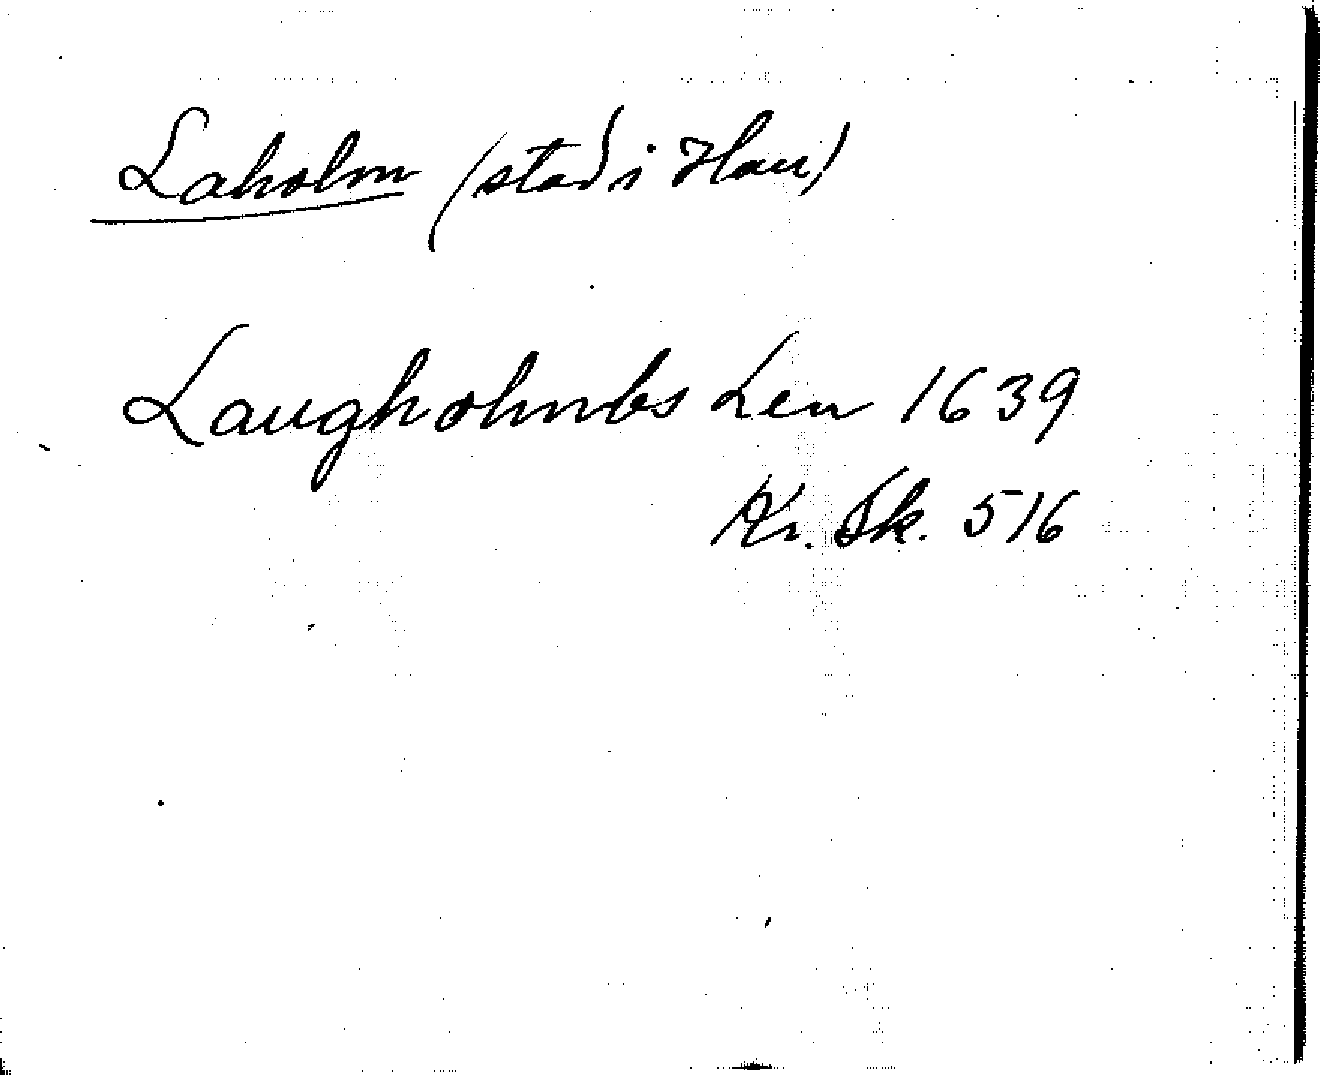 Laholm (stad i Hall)
Laugholmbs Len 1639
Kr. Sk. 516